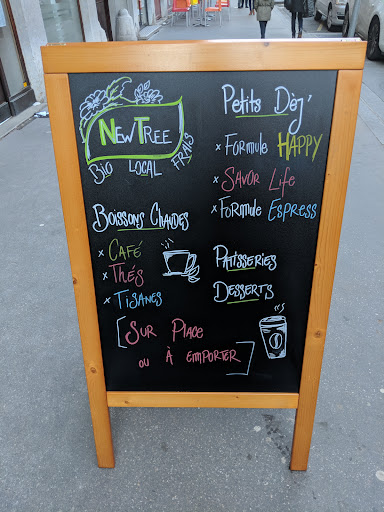 NEW TREE
BIO LOCAL FRAIS
BOISSONS CHAUDES
x CAFÉ
x THÉS
x TISANES
[SUR PLACE
OU À EMPORTER]
PETITS DÈJ'
x FORMULE HAPPY
x SAVOR LIFE
x FORMULE ESPRESS
PATISSERIES
DESSERTS